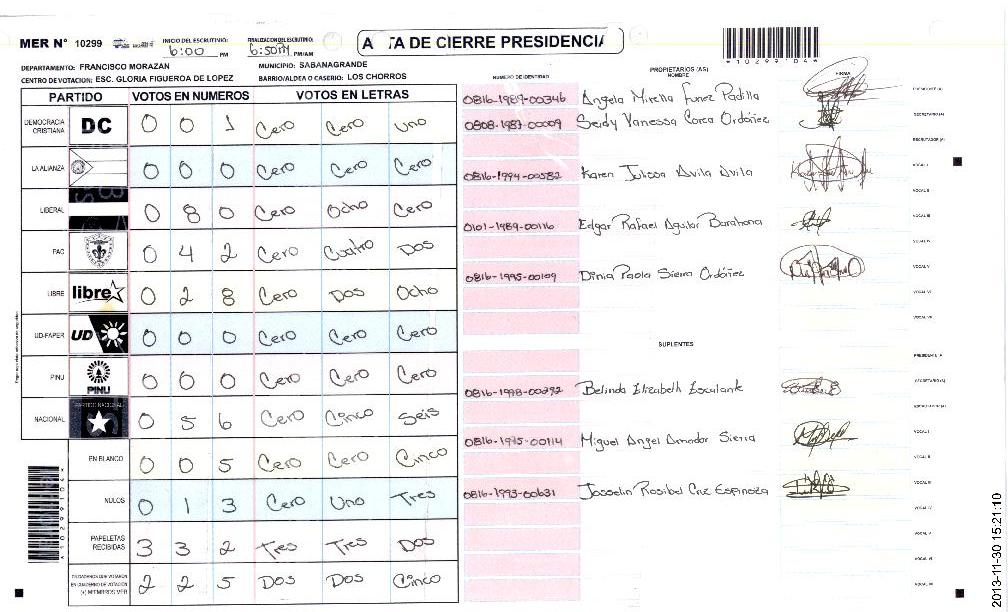 MER N° 10299
INICIO DEL ESCRUTINIO: 6:00 PM
FINALIZACION DEL ESCRUTINIO: 6:50PM PM/AM
A TA DE CIERRE PRESIDENCIA
*10299104*
DEPARTAMENTO: FRANCISCO MORAZAN
MUNICIPIO: SABANAGRANDE
CENTRO DE VOTACION: ESC. GLORIA FIGUEROA DE LOPEZ
BARRIO/ALDEA O CASERIO: LOS CHORROS
PARTIDO VOTOS EN NUMEROS VOTOS EN LETRAS
DEMOCRACIA CRISTIANA DC 0 0 1 Cero Cero Uno
LA ALIANZA 0 0 0 Cero Cero Cero
LIBERAL 0 8 0 Cero Ocho Cero
PAC 0 4 2 Cero Cuatro Dos
LIBRE libre 0 2 8 Cero Dos Ocho
UD-FAPER UD 0 0 0 Cero Cero Cero
PINU PINU 0 0 0 Cero Cero Cero
NACIONAL PARTIDO NACIONAL 0 5 6 Cero Cinco Seis
EN BLANCO 0 0 5 Cero Cero Cinco
NULOS 0 1 3 Cero Uno Tres
PAPELETAS RECIBIDAS 3 3 2 Tres Tres Dos
CIUDADANOS QUE VOTARON
EN CUADERNO DE VOTACIÓN
(+) MIEMBROS MER 2 2 5 Dos Dos Cinco
NUMERO DE IDENTIDAD
PROPIETARIOS (AS)
NOMBRE
FIRMA
0816-1989-00346 Angela Mirella Funez Padilla PRESIDENTE (A)
0808-1987-00009 Seidy Vanessa Ordóñez SECRETARIO (A)
ESCRUTADOR (A)
0816-1994-00582 Karen Julissa Avila Avila VOCAL I
VOCAL II
0101-1989-00116 Edgar Rafael Aguilar Barahona VOCAL III
VOCAL IV
0816-1995-00109 Dinia Paola Sierra Ordóñez VOCAL V
VOCAL VI
VOCAL VII
SUPLENTES
PRESIDENTE A
0816-1998-00292 Belinda Elizabeth Escalante SECRETARIO (A)
ESCRUTADOR (A)
0816-1995-00114 Miguel Angel Amador Sierra VOCAL I
VOCAL II
0816-1993-00631 Josselin Rosibel Cruz Espinoza VOCAL III
VOCAL IV
VOCAL V
VOCAL VI
VOCAL VII
2013-11-30 15:21:10